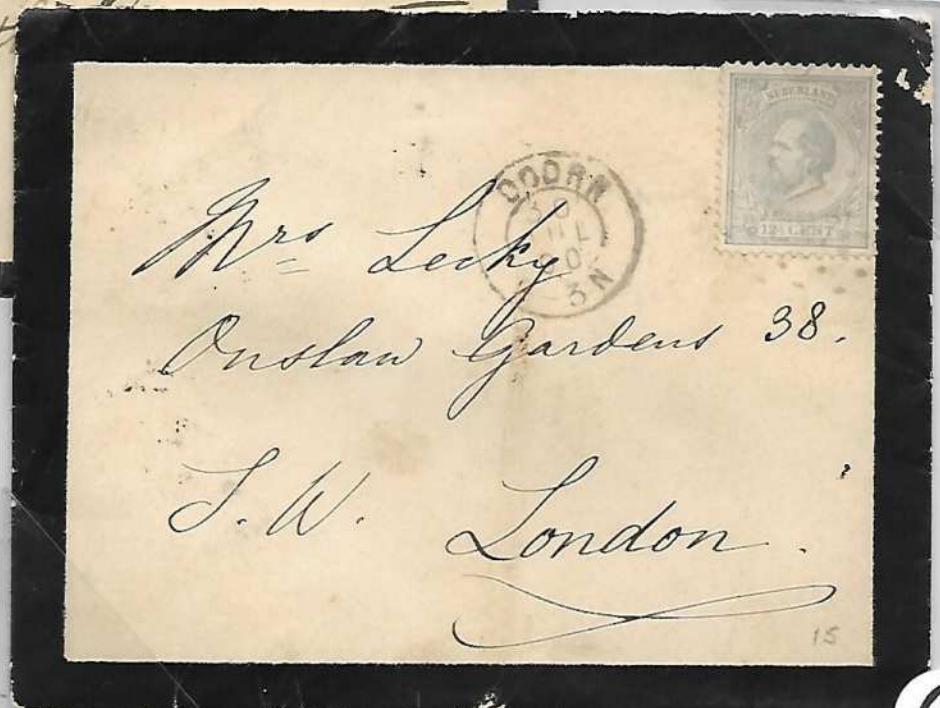 NEDERLAND
12½ CENT
DOORN
3 N
Mrs Lecky
Onslow Gardens 38.
S. W. London.
15